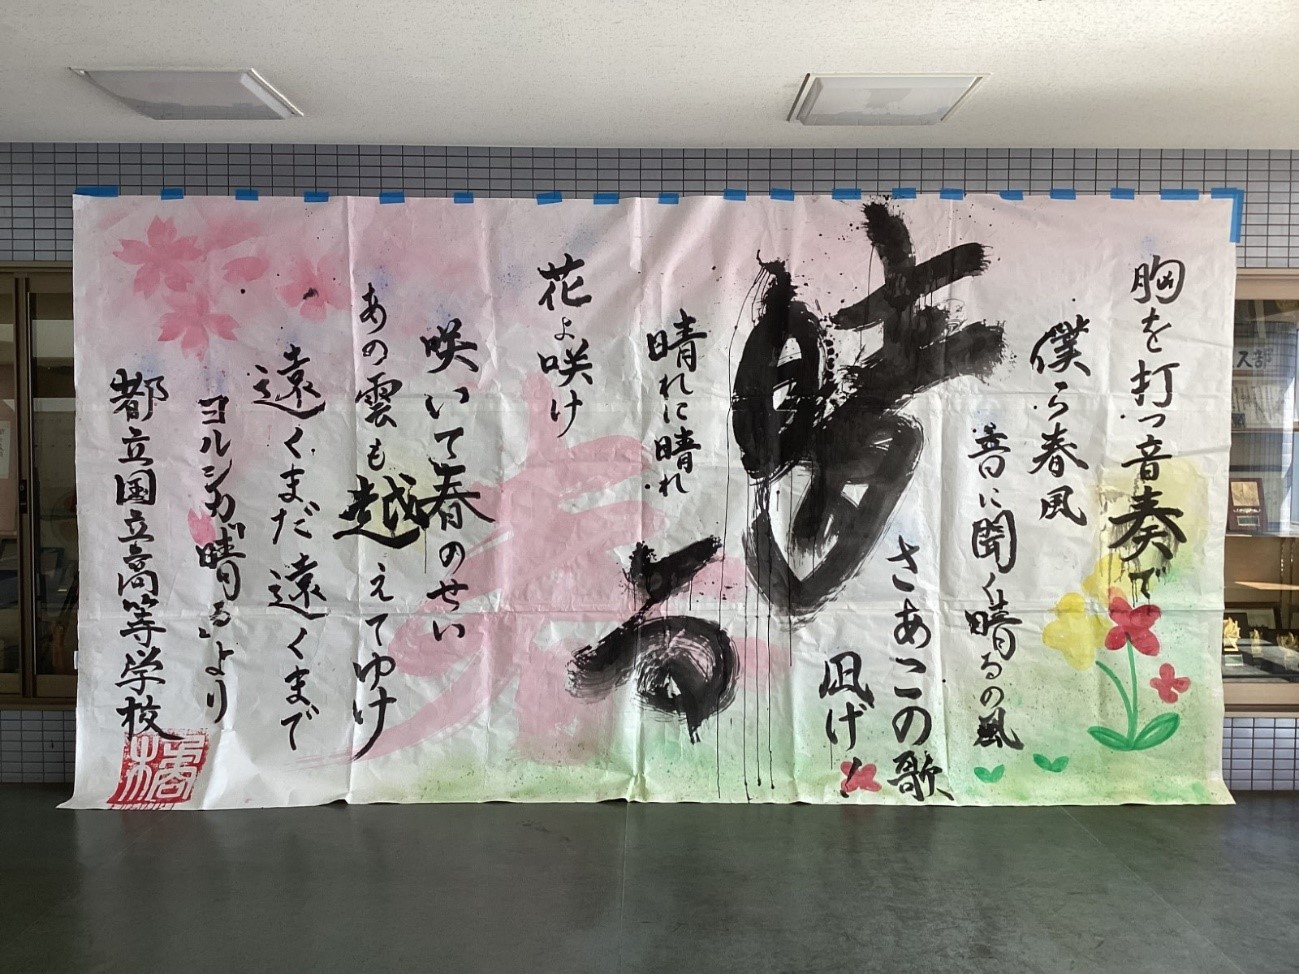 胸を打つ音奏で
僕ら春風
音に聞く晴るの風
さあこの歌
凪げ！
晴る
晴れに晴れ
花よ咲け
春
咲いて春のせい
あの雲も越えてゆけ
遠くまだ遠くまで
ヨルシカ"晴る"より
都立国立高等学校